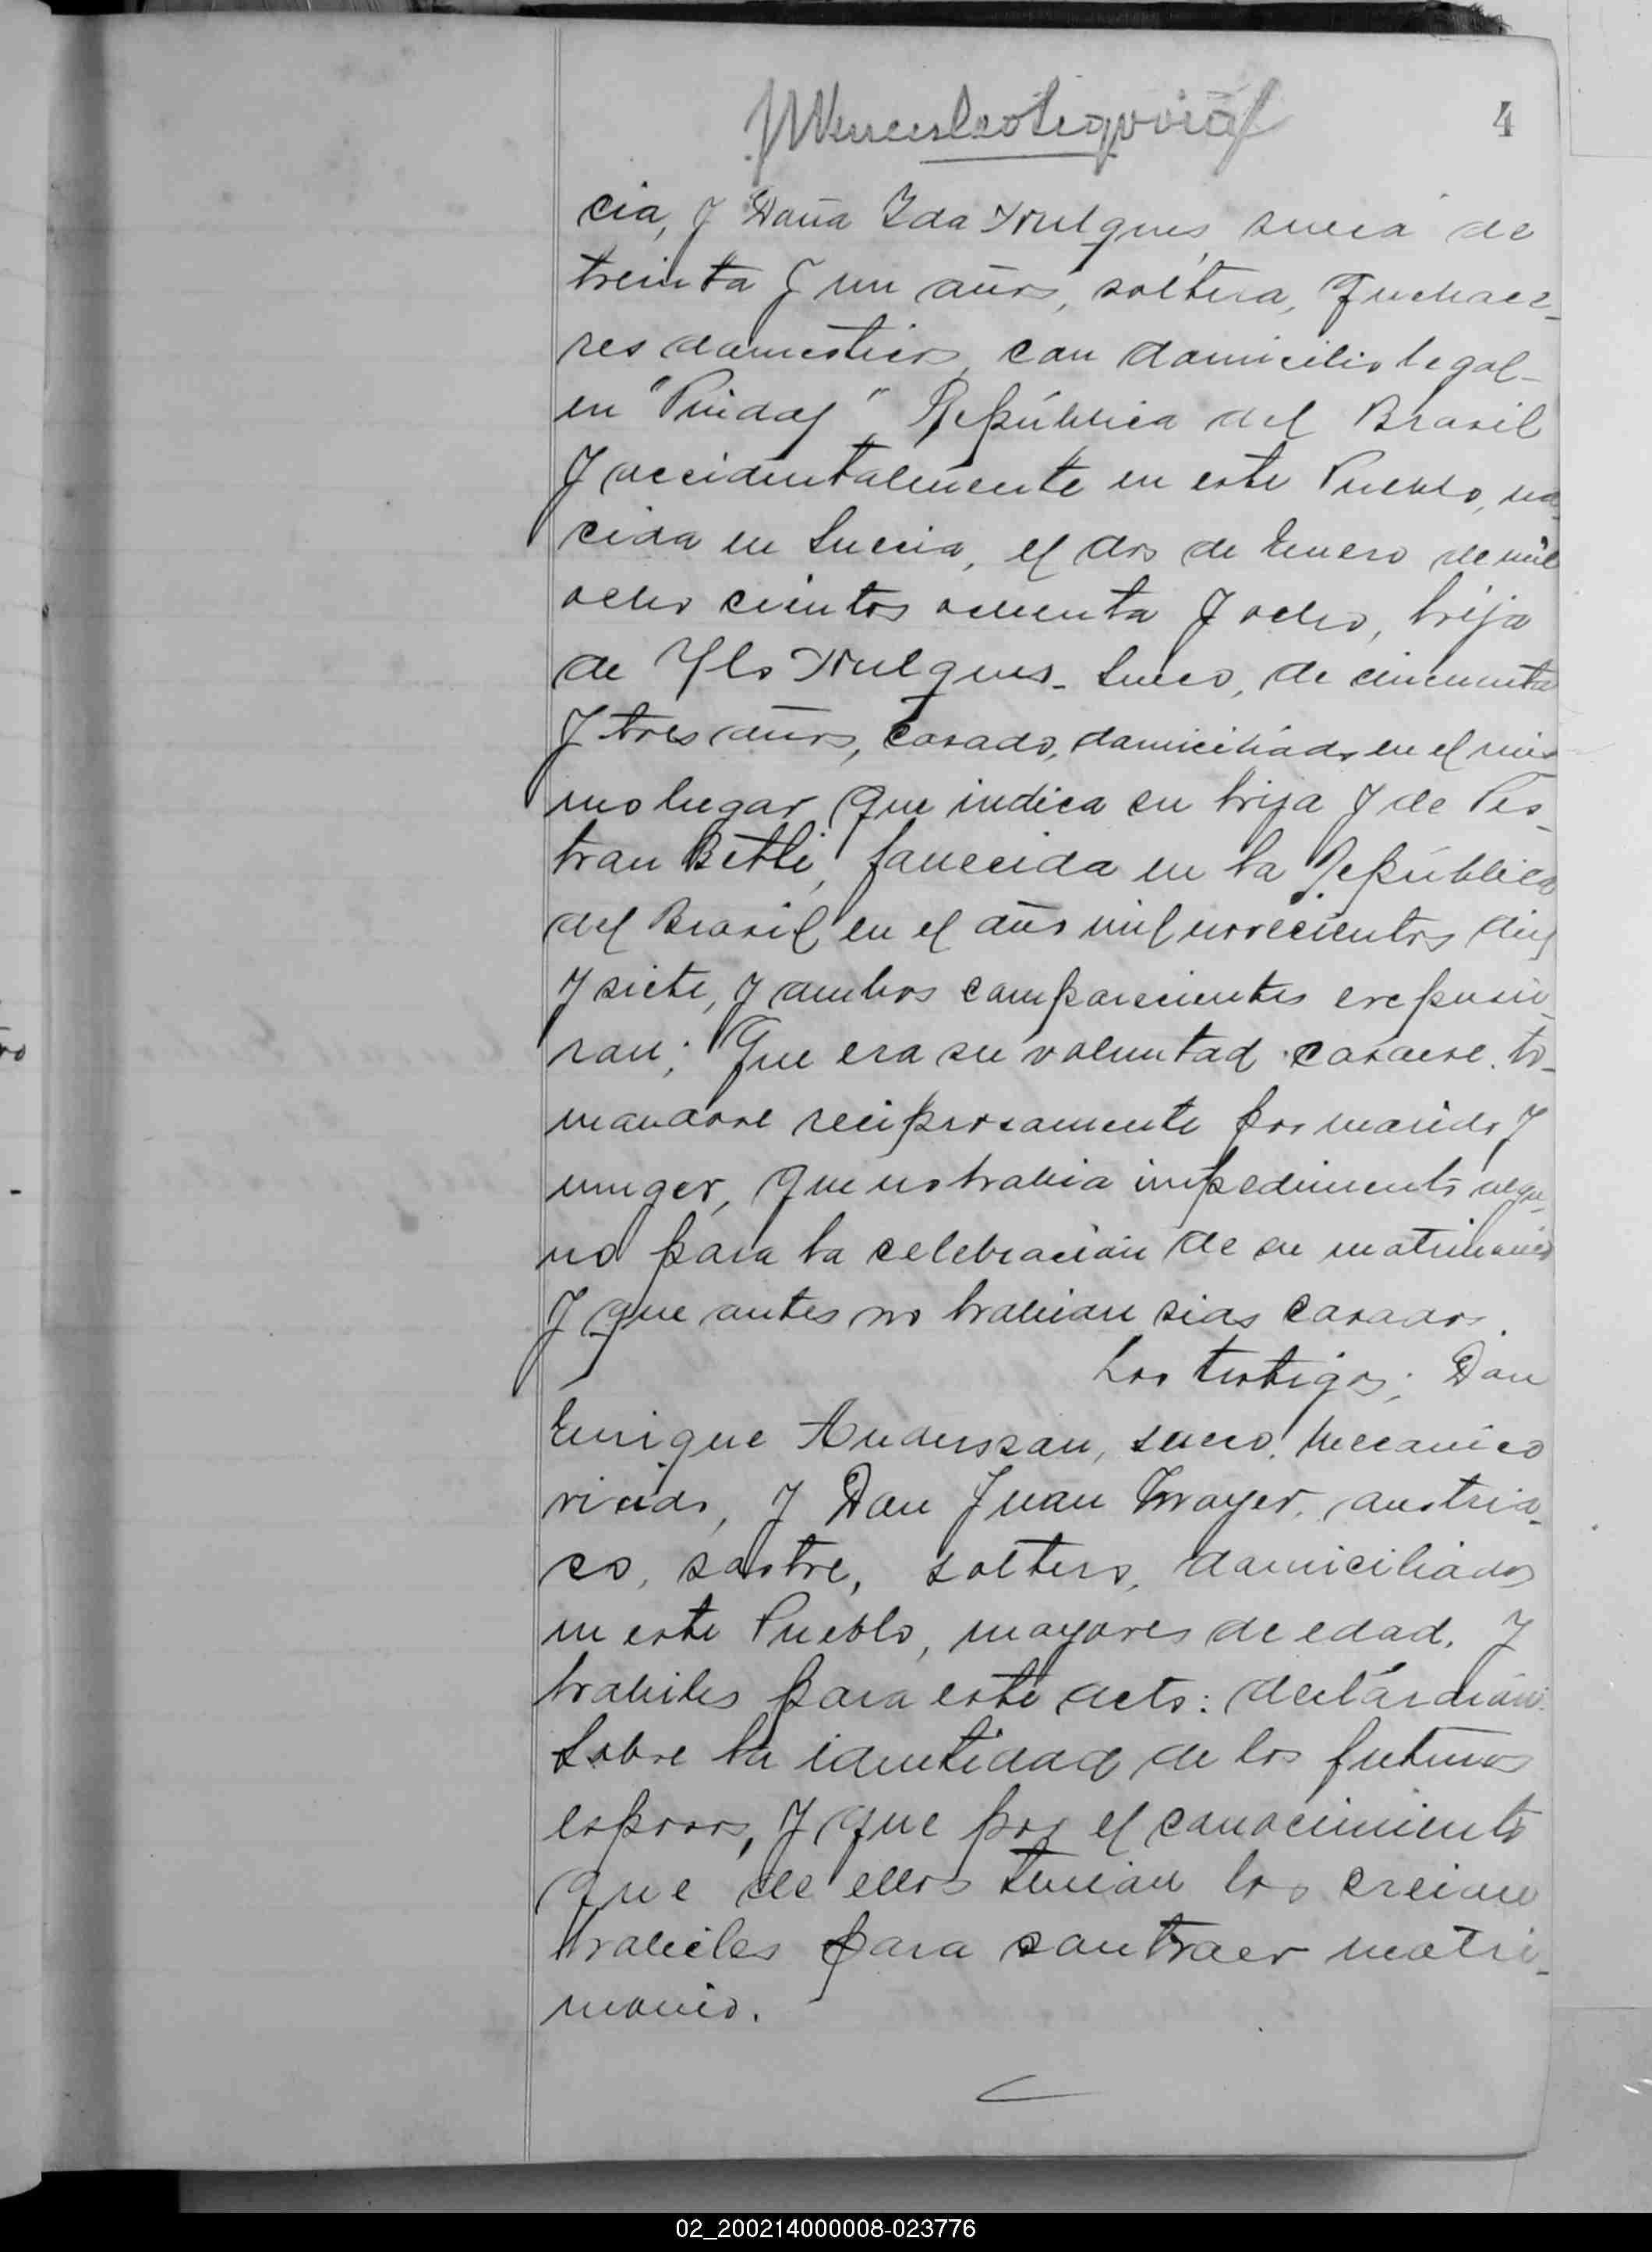 4
cia, y Doña Ida Hulques, sueca de
treinta y un años, soltera, quehace-
res domesticos, con domicilio legal
en " " República del Brasil
y accidentalmente en este Pueblo, na-
cida en Suecia, el dos de Enero de mil
ocho cientos ochenta y ocho, hija
de Hulques. Sueco, de cincuenta
y tres años, casado, domiciliado en el mis-
mo lugar que indica su hija y de Pes-
tran Betti, fallecida en la República
del Brasil en el año mil novecientos diez
y siete, y ambos comparecientes expusie-
ron; Que era su voluntad casarse to-
mandose reciprocamente por marido y
muger, que no habia impedimento algu-
no para la celebracion de su matrimonio
y que antes no habian sido casados.
Los testigos; Don
Enrique Anderszon, sueco, meccanico
viudo, y Don Juan Mayer, austria-
co, sastre, soltero, domiciliados
en este Pueblo, mayores de edad, y
habiles para este acto: declararon
Sobre la identidad de los futuros
esposos, y que por el conocimiento
que de ellos tenian los creian
habiles para contraer matri-
monio.
02_200214000008-023776